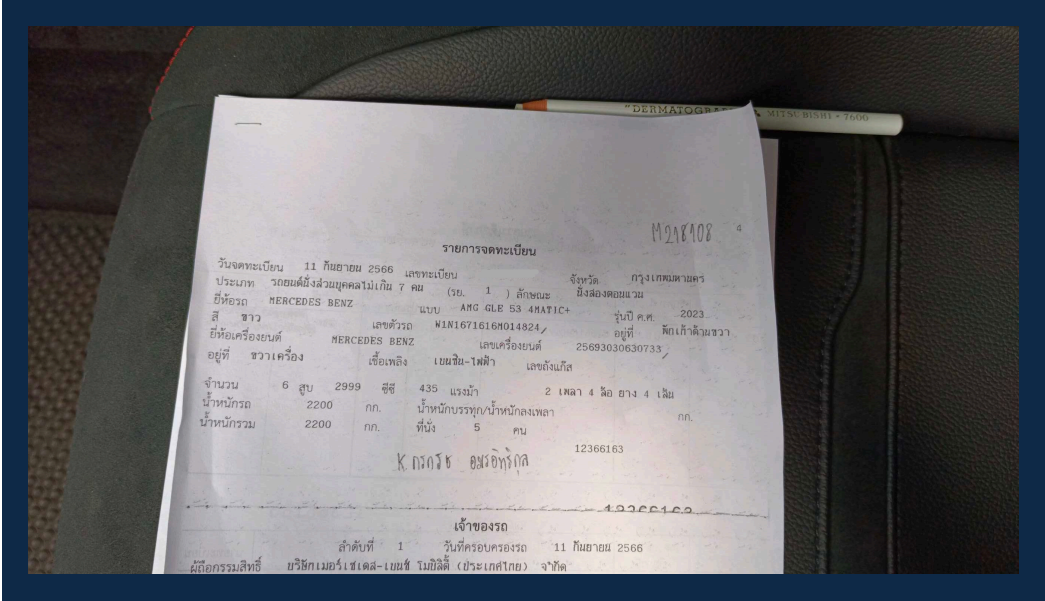 "DERMATOGRA MITSUBISHI • 7600
M218108 4
รายการจดทะเบียน
วันจดทะเบียน 11 กันยายน 2566 เลขทะเบียน จังหวัด กรุงเทพมหานคร
ประเภท รถยนต์นั่งส่วนบุคคลไม่เกิน 7 คน (รย. 1 ) ลักษณะ นั่งสองตอนแวน
ยี่ห้อรถ MERCEDES BENZ แบบ AMG GLE 53 4MATIC+ รุ่นปี ค.ศ. 2023
สี ขาว เลขตัวรถ W1N1671616M014824 อยู่ที่ พักเท้าด้านขวา
ยี่ห้อเครื่องยนต์ MERCEDES BENZ เลขเครื่องยนต์ 25693030630733
อยู่ที่ ขวาเครื่อง เชื้อเพลิง เบนซิน-ไฟฟ้า เลขถังแก๊ส
จำนวน 6 สูบ 2999 ซีซี 435 แรงม้า 2 เพลา 4 ล้อ ยาง 4 เส้น
น้ำหนักรถ 2200 กก. น้ำหนักบรรทุก/น้ำหนักลงเพลา กก.
น้ำหนักรวม 2200 กก. ที่นั่ง 5 คน
12366163
K. กรกรัช อมรอิทธิกุล
12366163
เจ้าของรถ
ลำดับที่ 1 วันที่ครอบครองรถ 11 กันยายน 2566
ผู้ถือกรรมสิทธิ์ บริษัทเมอร์เซเดส-เบนซ์ โมบิลิตี้ (ประเทศไทย) จำกัด